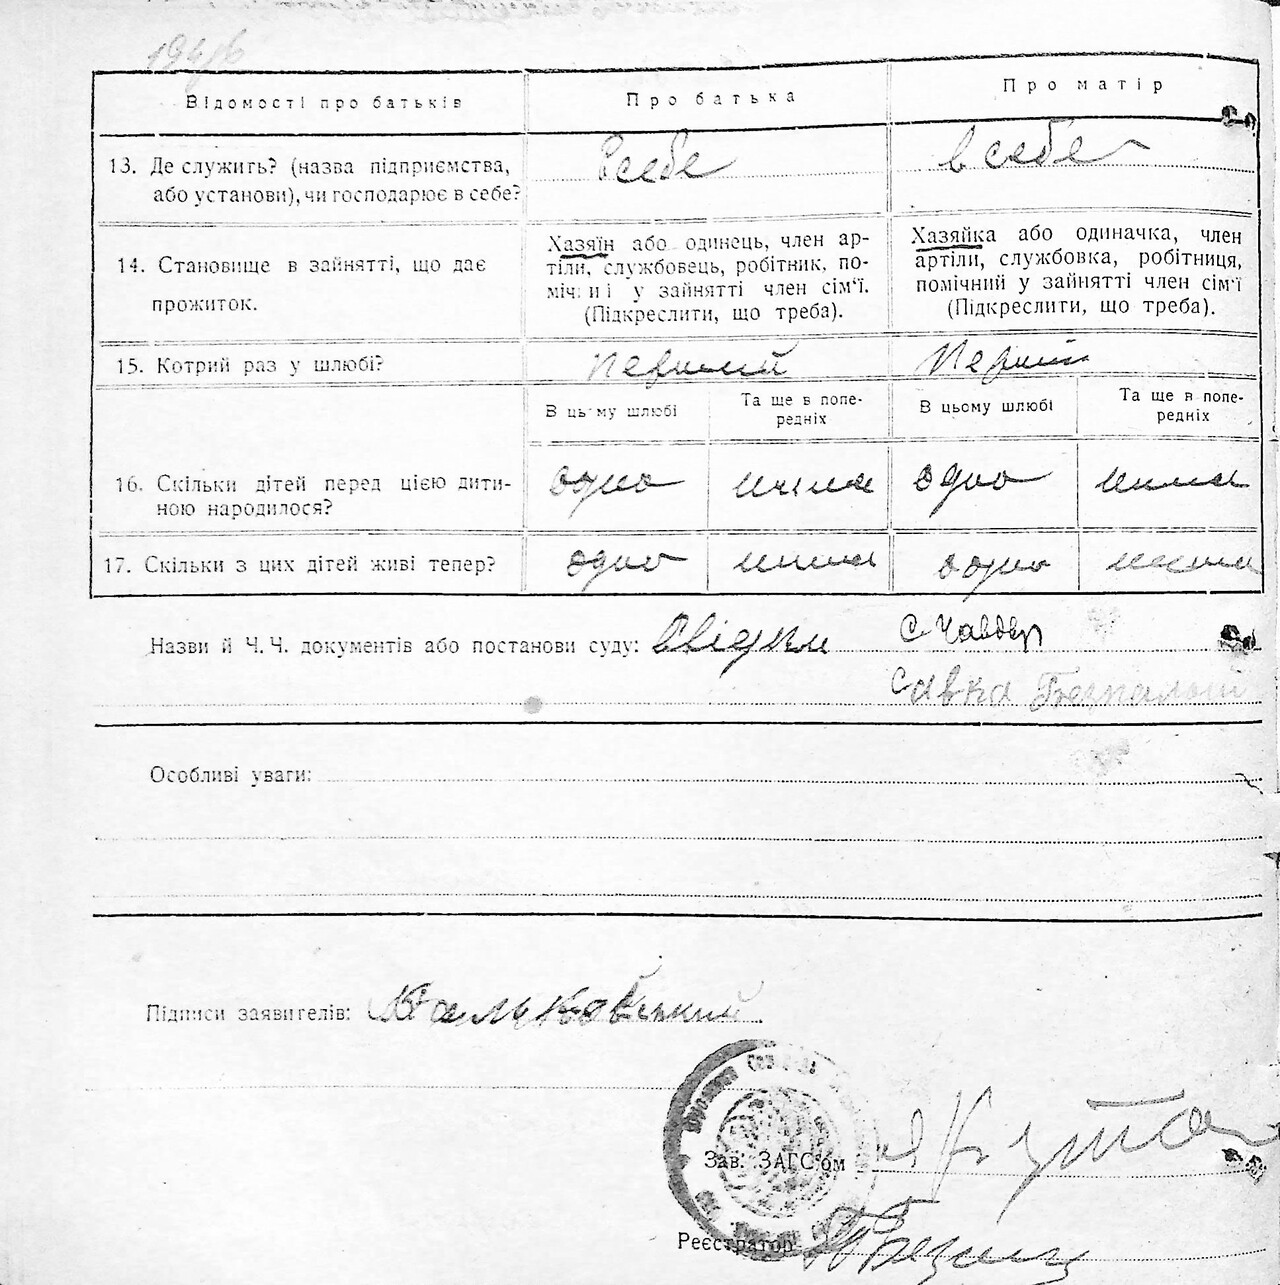 Відомості про батьків
Про батька
Про матір
13. Де служить? (назва підприємства,
або установи), чи господарює в себе?
В себе
в себе
14. Становище в зайнятті, що дає
прожиток.
Хазяїн або одинець, член ар-
тіли, службовець, робітник, по-
міч и і у зайнятті член сім'ї.
(Підкреслити, що треба).
Хазяйка або одиначка, член
артіли, службовка, робітниця,
помічний у зайнятті член сім'ї
(Підкреслити, що треба).
15. Котрий раз у шлюбі?
первий
первий
В цьому шлюбі
Та ще в попе-
редніх
В цьому шлюбі
Та ще в попе-
редніх
16. Скільки дітей перед цією дити-
ною народилося?
одно
одно
17. Скільки з цих дітей живі тепер?
одно
одно
Назви й Ч.Ч. документів або постанови суду: Свідки
Савка
Особливі уваги:
Підписи заявителів:
Зав. ЗАГС'ом
Реєстратор